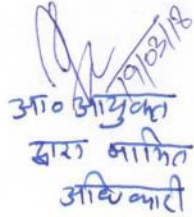 19/03/18
आ० आयुक्त
द्वारा नामित
अधिकारी